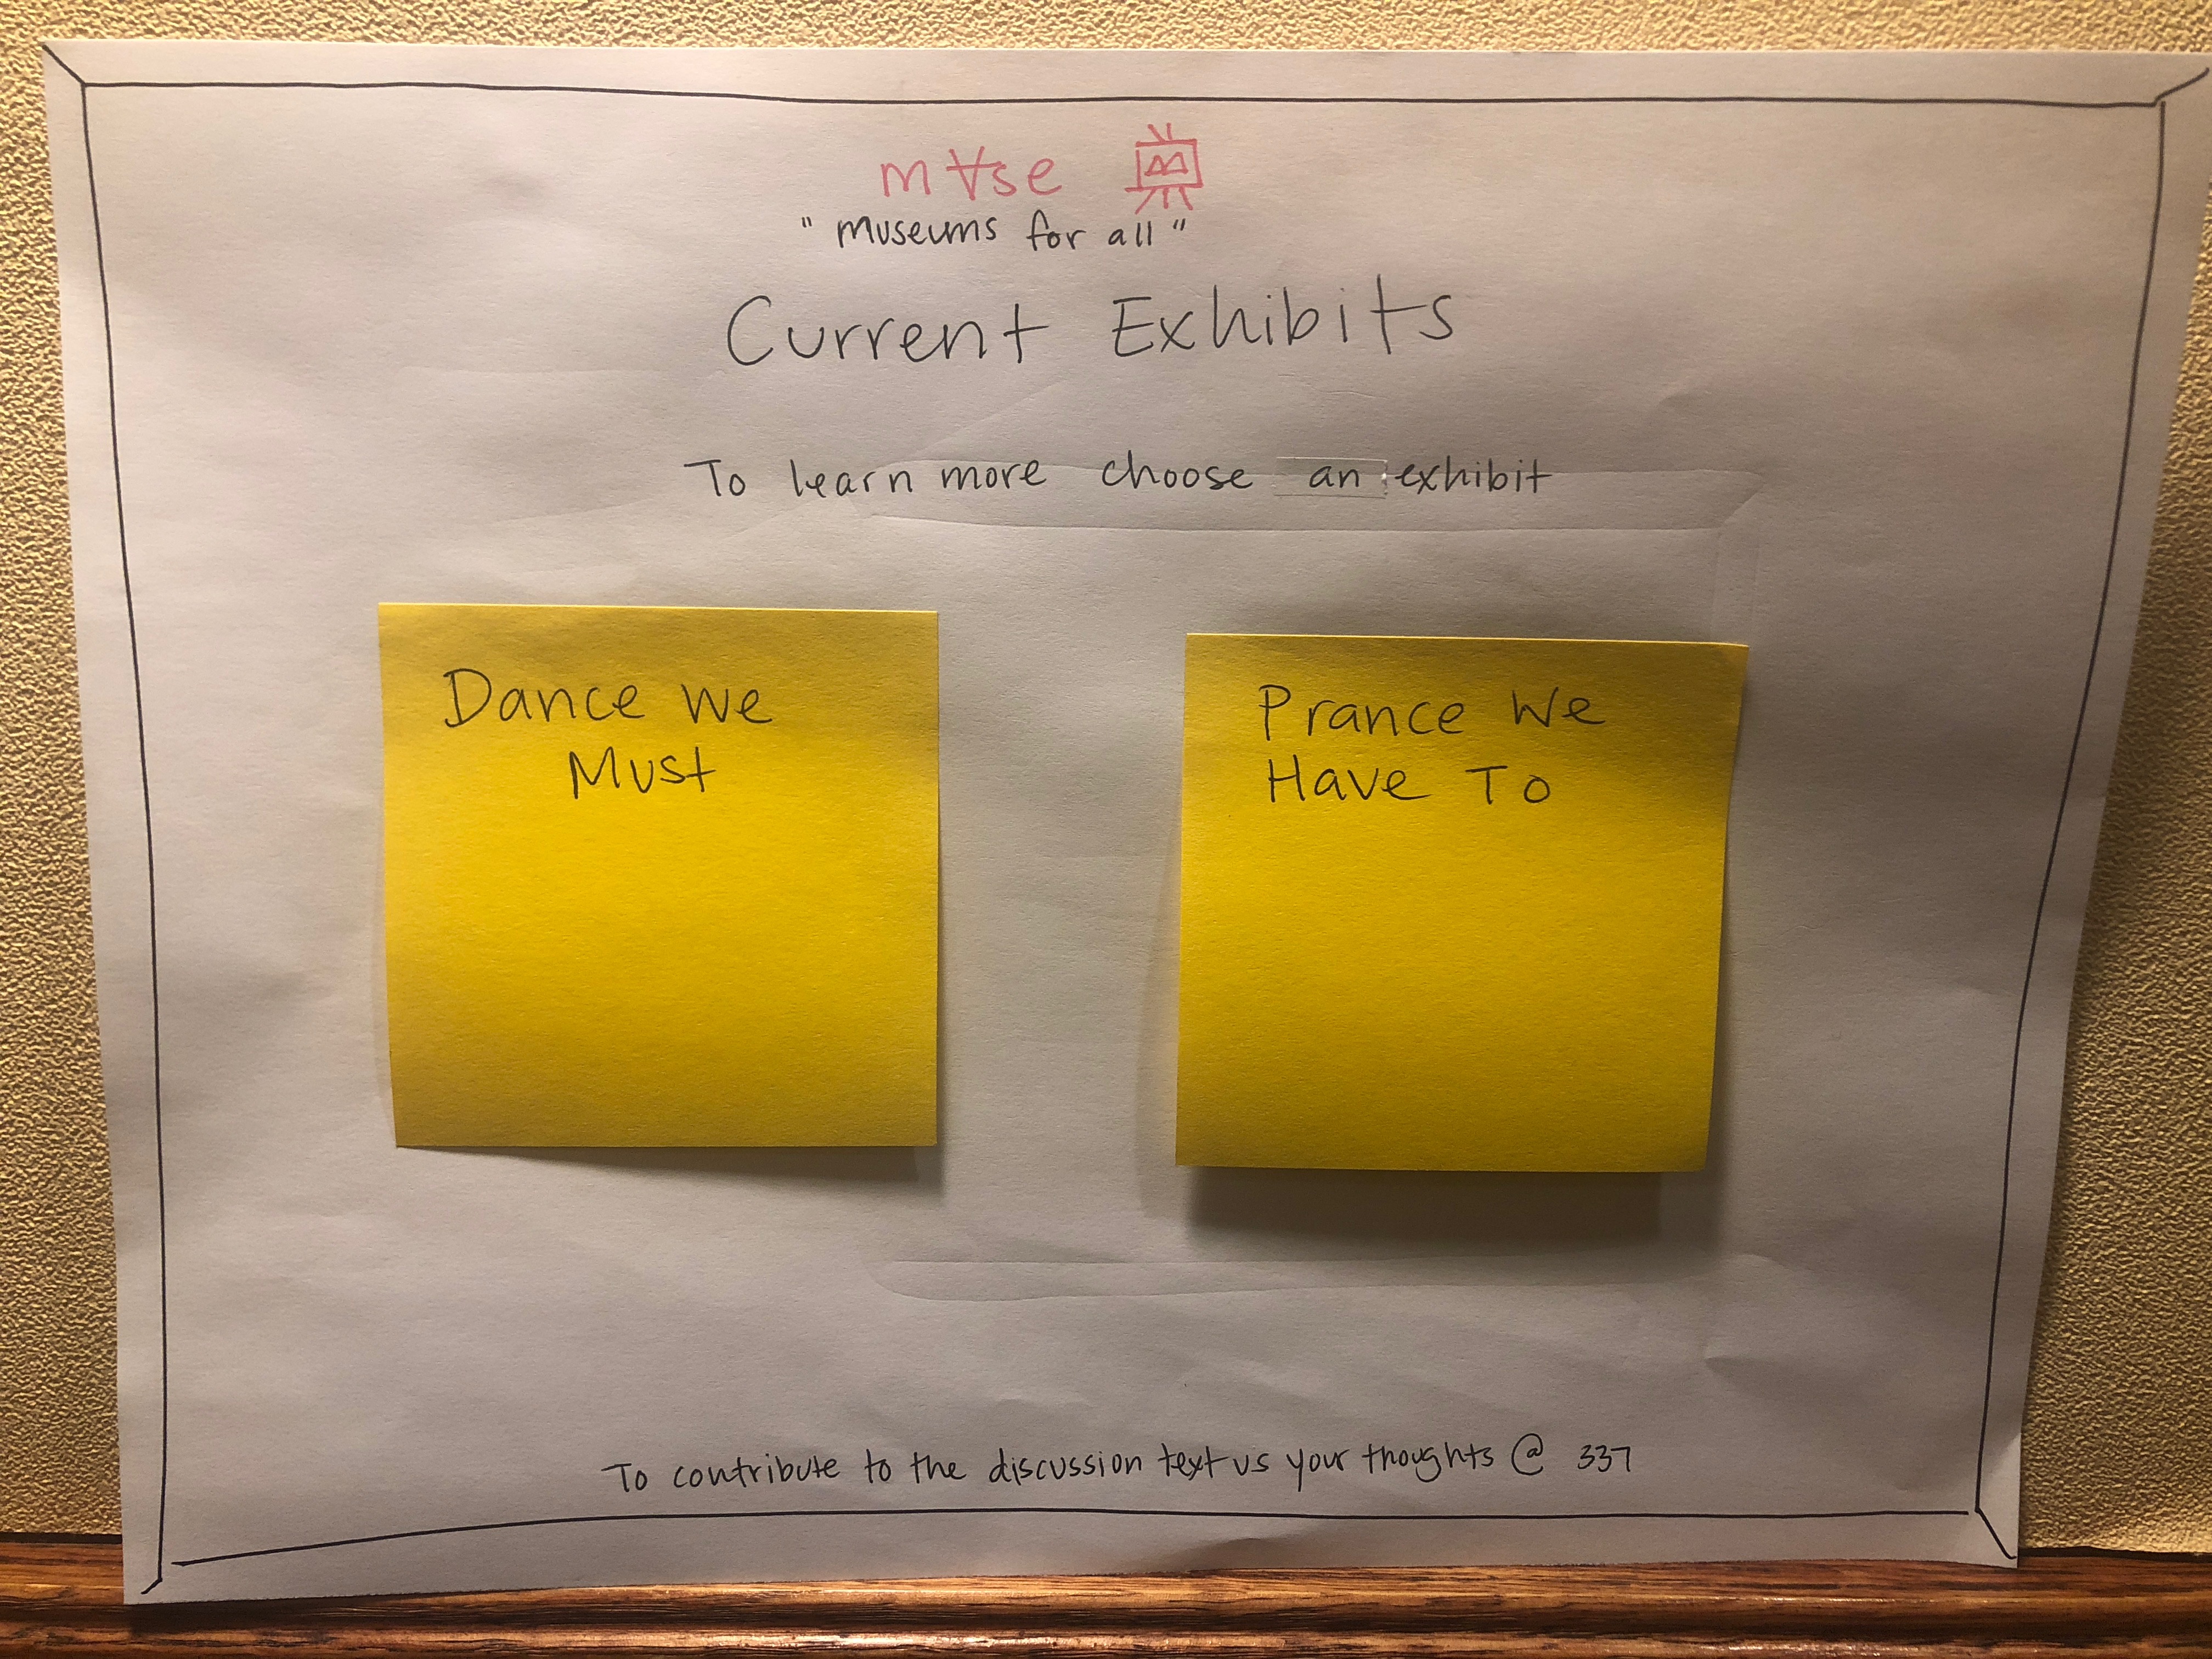 m∀se
"museums for all"
Current Exhibits
To learn more choose an exhibit
Dance We
Must
Prance We
Have To
To contribute to the discussion text us your thoughts @ 337